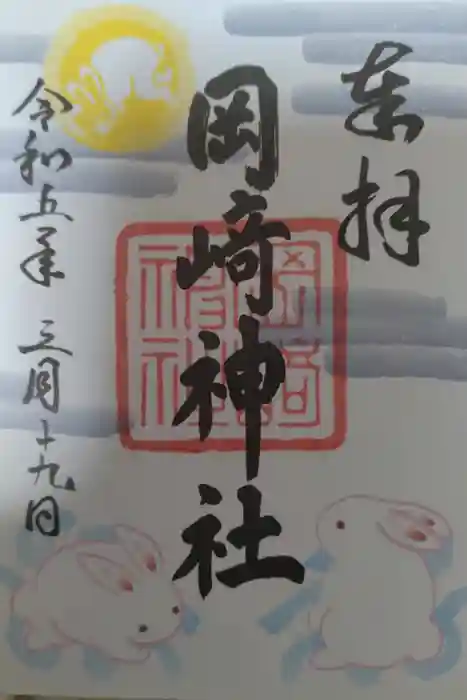 奉拝
岡崎神社
令和五年 三月十九日
岡崎神社